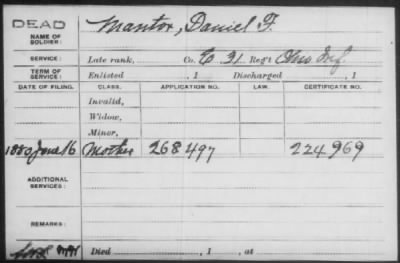 DEAD
NAME OF SOLDIER: Mantor, Daniel F.
SERVICE: Late rank, Co. E 21 Reg't Ohio Inf.
TERM OF SERVICE: Enlisted , 1 Discharged , 1
DATE OF FILING. CLASS. APPLICATION NO. LAW. CERTIFICATE NO.
Invalid,
Widow,
Minor,
1880 June 16 Mother 268497 224969
ADDITIONAL SERVICES:
REMARKS:
Died , 1 , at